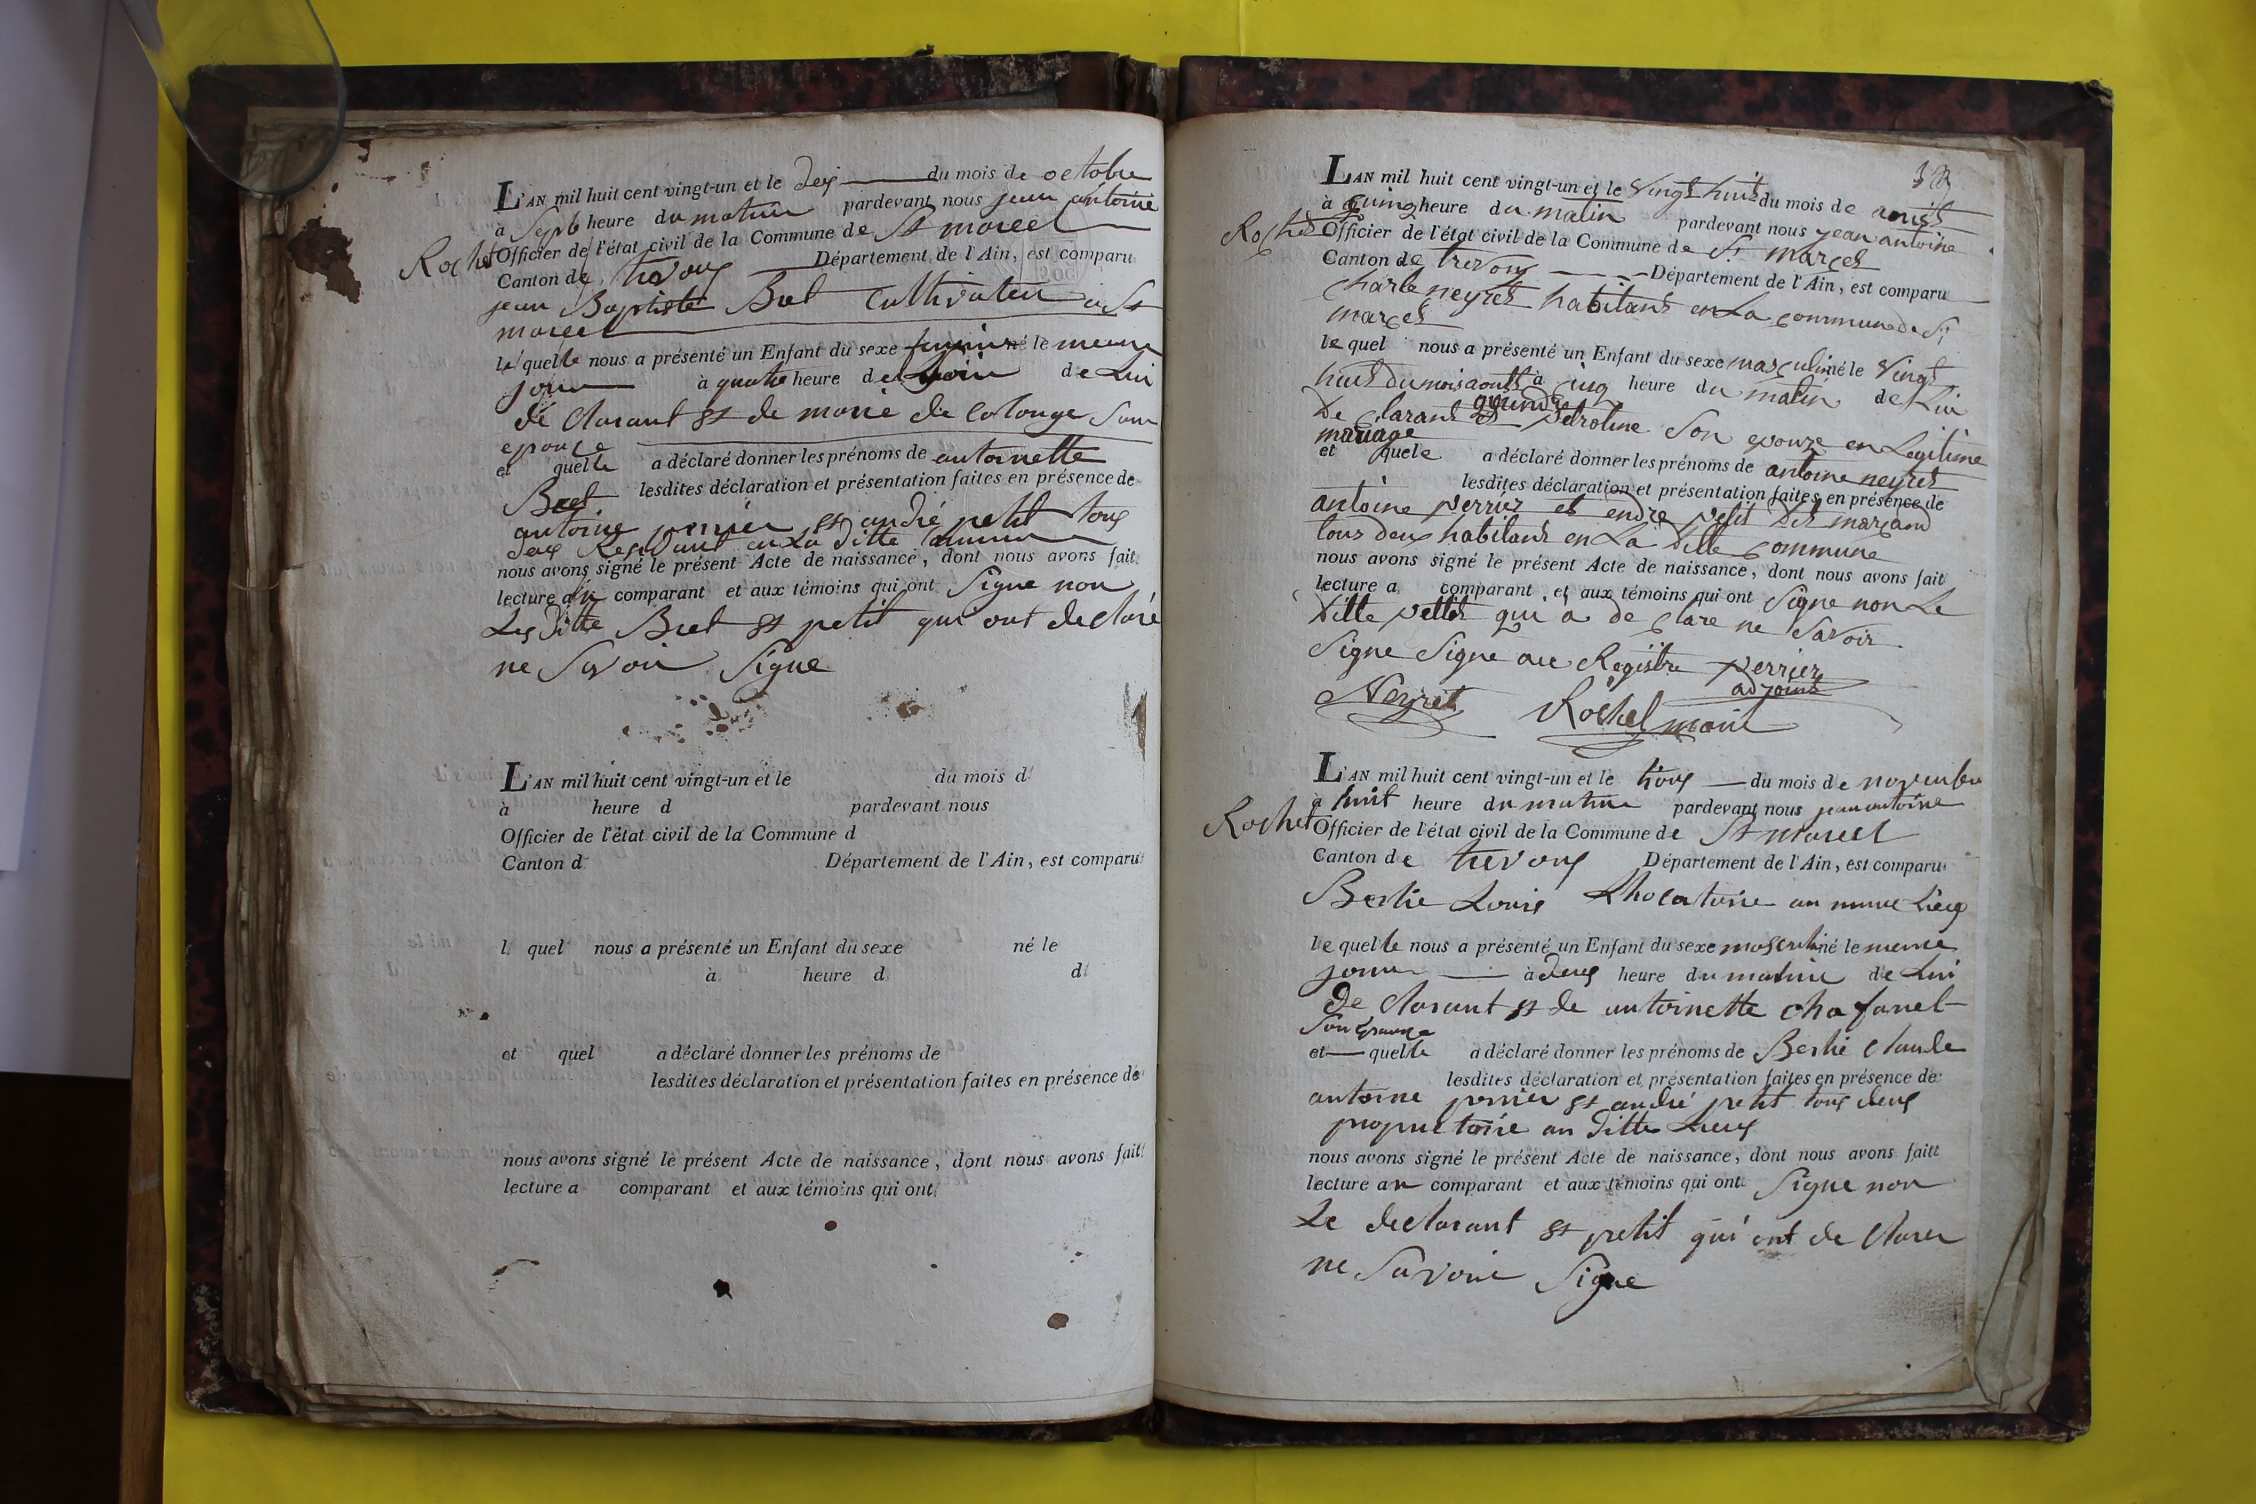 L'AN mil huit cent vingt-un et le deux du mois de octobre
à Sept heure du matin pardevant nous jean antoine
Rochet Officier de l'état civil de la Commune de St marcel
Canton de trevoux Département de l'Ain, est comparu
jean Baptiste Bret Cultivateur a St
marcel
laquelle nous a présenté un Enfant du sexe feminin né le meme
jour à quatre heure de de Lui
de clarant et de marie de colonge Son
epouze
et quelle a déclaré donner les prénoms de antoinette
Bret lesdites déclaration et présentation faites en présence de
antoine perrier et andré petit tous
deux Residant en La ditte commune
nous avons signé le présent Acte de naissance, dont nous avons fait
lecture au comparant et aux témoins qui ont Signe non
Les ditte Bret et petit qui ont declaré
ne Savoir Signe
L'AN mil huit cent vingt-un et le du mois d
à heure d pardevant nous
Officier de l'état civil de la Commune d
Canton d Département de l'Ain, est comparu
l quel nous a présenté un Enfant du sexe né le
à heure d d
et quel a déclaré donner les prénoms de
lesdites déclaration et présentation faites en présence de
nous avons signé le présent Acte de naissance, dont nous avons fait
lecture a comparant et aux témoins qui ont
L'AN mil huit cent vingt-un et le vingt huit du mois de aoust
à heure du matin pardevant nous jean antoine
Rochet Officier de l'état civil de la Commune de St marcel
Canton de trevoux Département de l'Ain, est comparu
charle neyret habitant en La commune de St
marcel
lequel nous a présenté un Enfant du sexe masculin né le vingt
huit du mois aoutt à cinq heure du matin de Lui
De clarant et petroline Son epouze en Legitime
mariage
et quele a déclaré donner les prénoms de antoine neyret
lesdites déclaration et présentation faites en présence de
antoine perrier et endre petit
tous deux habitant en La ditte commune
nous avons signé le présent Acte de naissance, dont nous avons fait
lecture a comparant et aux témoins qui ont Signe non Le
ditte pettit qui a de clare ne Savoir
Signe Signe au Registre perrier
adjoint
Neyret Rochet maire
L'AN mil huit cent vingt-un et le trois du mois de novembre
à huit heure du matin pardevant nous jean antoine
Rochet Officier de l'état civil de la Commune de St marcel
Canton de trevoux Département de l'Ain, est comparu
Berlie Louis au meme Lieux
lequelle nous a présenté un Enfant du sexe masculin né le meme
jour à deux heure du matin de Lui
de clarant et de antoinette chafanel
Son epouze
et quelle a déclaré donner les prénoms de Berlie claude
lesdites déclaration et présentation faites en présence de
antoine perrier et andré petit tous deux
proprietaire au ditte Lieux
nous avons signé le présent Acte de naissance, dont nous avons fait
lecture au comparant et aux témoins qui ont Signe non
Le declarant et petit qui ont de clarer
ne Savoir Signe